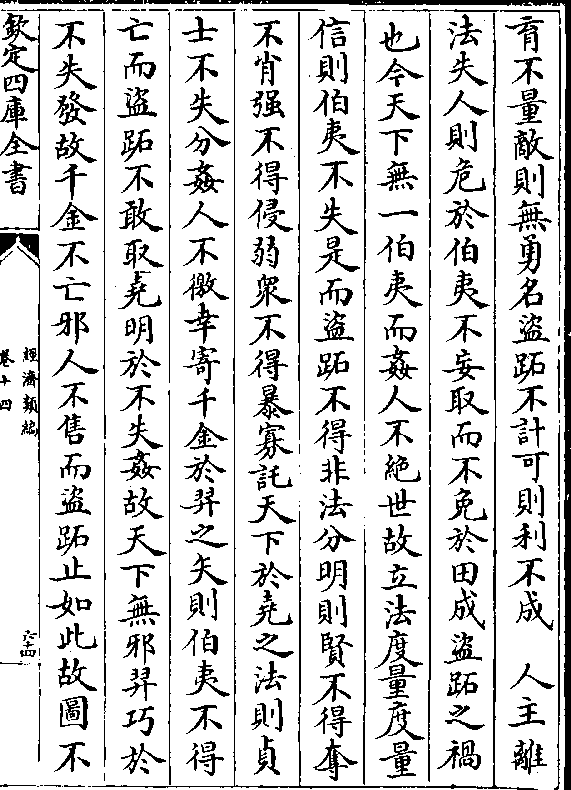 育不量敵則無勇名盜跖不計可則利不成　人主離
法失人則危於伯夷不妄取而不免於田成盜跖之禍
也今天下無一伯夷而姦人不絕世故立法度量度量
信則伯夷不失是而盜跖不得非法分明則賢不得奪
不肖强不得侵弱衆不得暴寡託天下於堯之法則貞
士不失分姦人不徼幸寄千金於羿之矢則伯夷不得
亡而盜跖不敢取堯明於不失姦故天下無邪羿巧於
不失發故千金不亡邪人不售而盜跖止如此故圖不
欽定四庫全書
經濟類編
卷十四
六十四